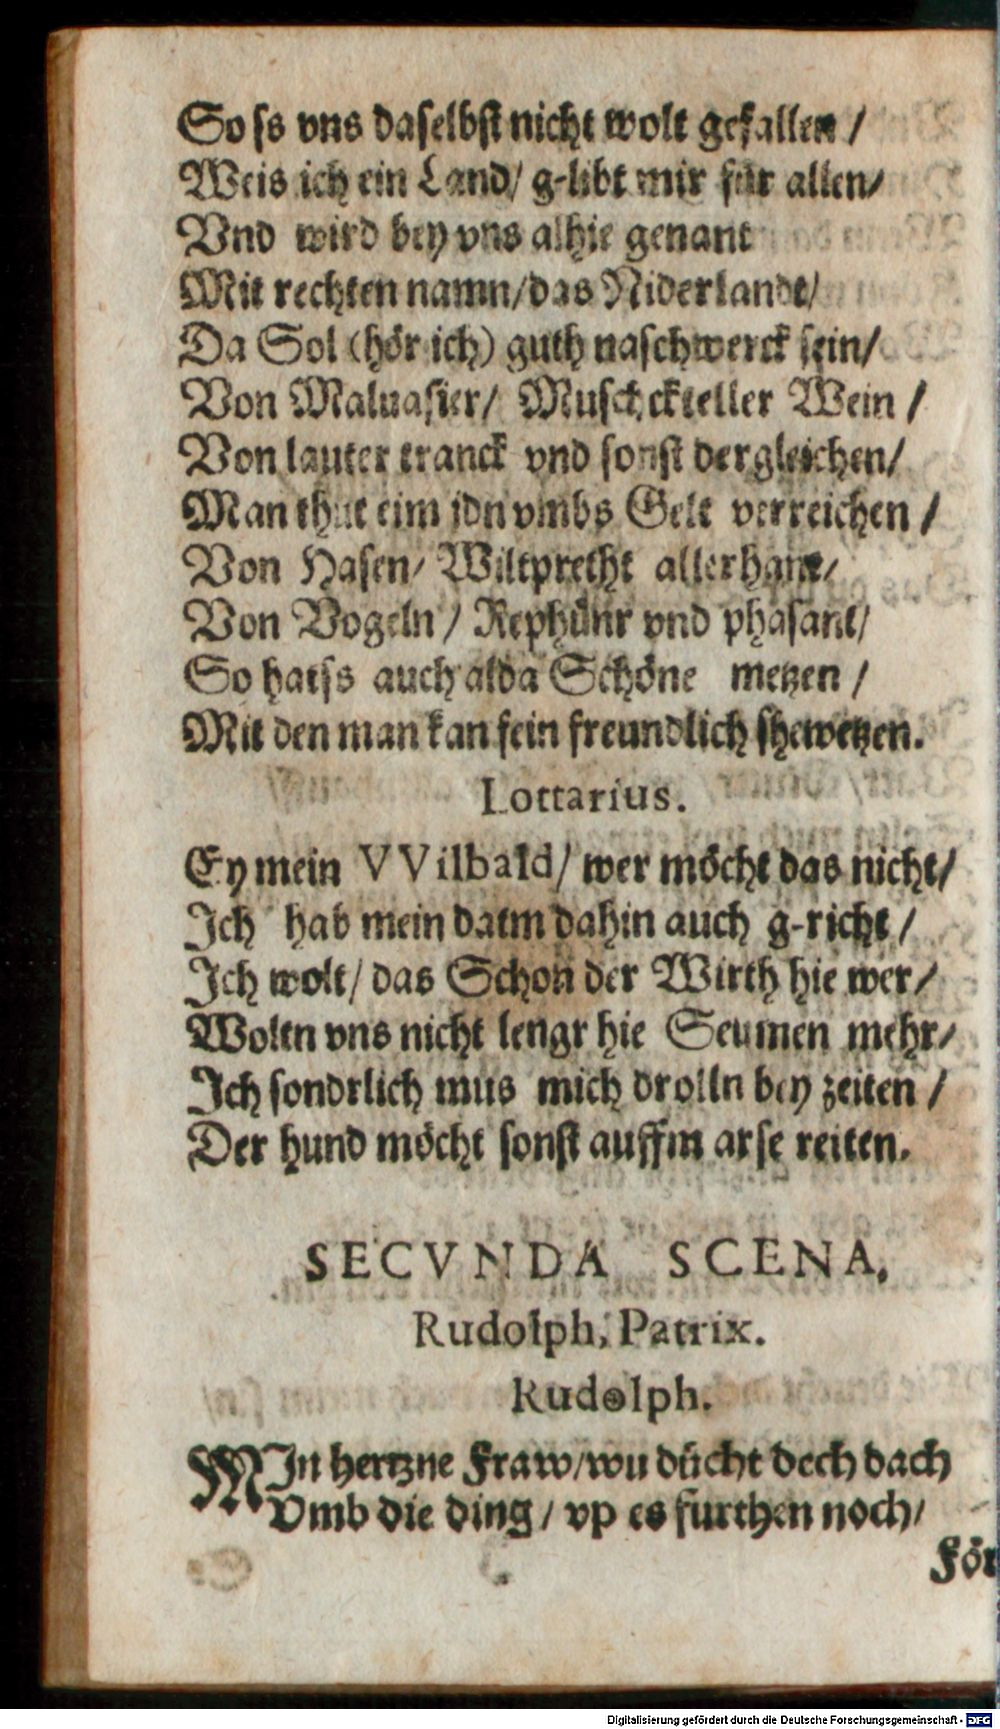 So ſs vns daſelbſt nicht wolt gefallen /
Weis ich ein Land/ g-libt mir für allen/
Vnd wird bey vns alhie genant
Mit rechten namn/das Niderlandt/
Da Sol (hör ich) guth naſchwerck ſein/
Von Maluaſier/ Muſch,ckteller Wein /
Von lauter tranck vnd ſonſt dergleichen/
Man thut eim jdn vmbs Gelt verreichen /
Von Haſen/ Wiltpretht allerhant/
Von Vogeln / Rephünr vnd phaſant/
So hatſs auch alda Schöne metzen /
Mit den man kan fein freundlich ſhewetzen.
Lottarius.
Ey mein VVilbald/ wer möcht das nicht/
Ich hab mein datm dahin auch g-richt /
Ich wolt/ das Schon der Wirth hie wer/
Woltn vns nicht lengr hie Seumen mehr/
Ich ſondrlich mus mich drolln bey zeiten /
Der hund möcht ſonſt auffm arſe reiten.
SECVNDA SCENA.
Rudolph, Patrix.
Rudolph.
MIn hertzne Fraw/wu dücht dech dach
Vmb die ding / vp es furthen noch/
För
Digitalisierung gefördert durch die Deutsche Forschungsgemeinschaft - DFG